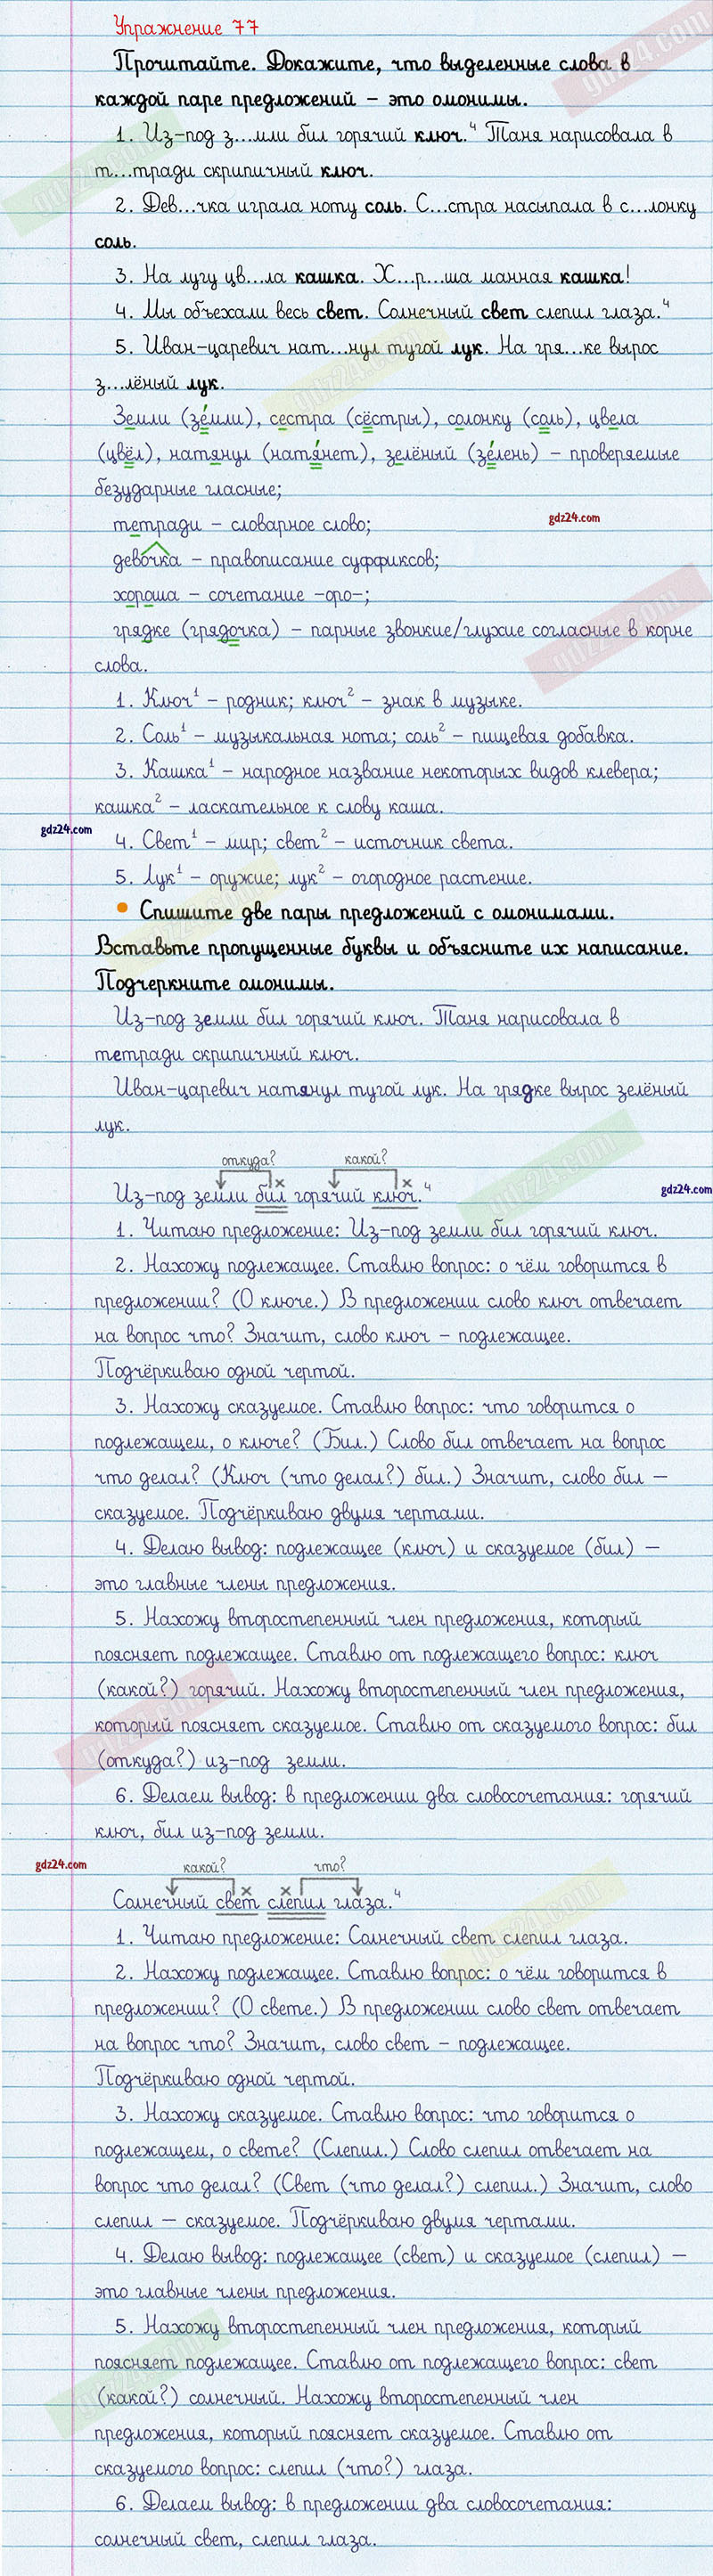 Упражнение 77
Прочитайте. Докажите, что выделенные слова в
каждой паре предложений – это омонимы.
1. Из-под з...мли бил горячий ключ.⁴ Таня нарисовала в
т...тради скрипичный ключ.
2. Дев...чка играла ноту соль. С...стра насыпала в с...лонку
соль.
3. На лугу цв...ла кашка. Х...р...ша манная кашка!
4. Мы объехали весь свет. Солнечный свет слепил глаза.⁴
5. Иван-царевич нат...нул тугой лук. На гря...ке вырос
з...лёный лук.
Земли (зе́мли), сестра (сёстры), солонку (соль), цвела
(цвёл), натянул (натя́нет), зелёный (зе́лень) – проверяемые
безударные гласные;
тетради – словарное слово;
gdz24.com
девочка – правописание суффиксов;
хороша – сочетание -оро-;
грядке (грядочка) – парные звонкие/глухие согласные в корне
слова.
1. Ключ¹ – родник; ключ² – знак в музыке.
2. Соль¹ – музыкальная нота; соль² – пищевая добавка.
3. Кашка¹ – народное название некоторых видов клевера;
кашка² – ласкательное к слову каша.
gdz24.com
4. Свет¹ – мир; свет² – источник света.
5. Лук¹ – оружие; лук² – огородное растение.
• Спишите две пары предложений с омонимами.
Вставьте пропущенные буквы и объясните их написание.
Подчеркните омонимы.
Из-под земли бил горячий ключ. Таня нарисовала в
тетради скрипичный ключ.
Иван-царевич натянул тугой лук. На грядке вырос зелёный
лук.
откуда? какой?
Из-под земли бил горячий ключ.⁴
gdz24.com
1. Читаю предложение: Из-под земли бил горячий ключ.
2. Нахожу подлежащее. Ставлю вопрос: о чём говорится в
предложении? (О ключе.) В предложении слово ключ отвечает
на вопрос что? Значит, слово ключ – подлежащее.
Подчёркиваю одной чертой.
3. Нахожу сказуемое. Ставлю вопрос: что говорится о
подлежащем, о ключе? (Бил.) Слово бил отвечает на вопрос
что делал? (Ключ (что делал?) бил.) Значит, слово бил –
сказуемое. Подчёркиваю двумя чертами.
4. Делаю вывод: подлежащее (ключ) и сказуемое (бил) –
это главные члены предложения.
5. Нахожу второстепенный член предложения, который
поясняет подлежащее. Ставлю от подлежащего вопрос: ключ
(какой?) горячий. Нахожу второстепенный член предложения,
который поясняет сказуемое. Ставлю от сказуемого вопрос: бил
(откуда?) из-под земли.
6. Делаем вывод: в предложении два словосочетания: горячий
ключ, бил из-под земли.
gdz24.com
какой? что?
Солнечный свет слепил глаза.⁴
1. Читаю предложение: Солнечный свет слепил глаза.
2. Нахожу подлежащее. Ставлю вопрос: о чём говорится в
предложении? (О свете.) В предложении слово свет отвечает
на вопрос что? Значит, слово свет – подлежащее.
Подчёркиваю одной чертой.
3. Нахожу сказуемое. Ставлю вопрос: что говорится о
подлежащем, о свете? (Слепил.) Слово слепил отвечает на
вопрос что делал? (Свет (что делал?) слепил.) Значит, слово
слепил – сказуемое. Подчёркиваю двумя чертами.
4. Делаю вывод: подлежащее (свет) и сказуемое (слепил) –
это главные члены предложения.
5. Нахожу второстепенный член предложения, который
поясняет подлежащее. Ставлю от подлежащего вопрос: свет
(какой?) солнечный. Нахожу второстепенный член
предложения, который поясняет сказуемое. Ставлю от
сказуемого вопрос: слепил (что?) глаза.
6. Делаем вывод: в предложении два словосочетания:
солнечный свет, слепил глаза.